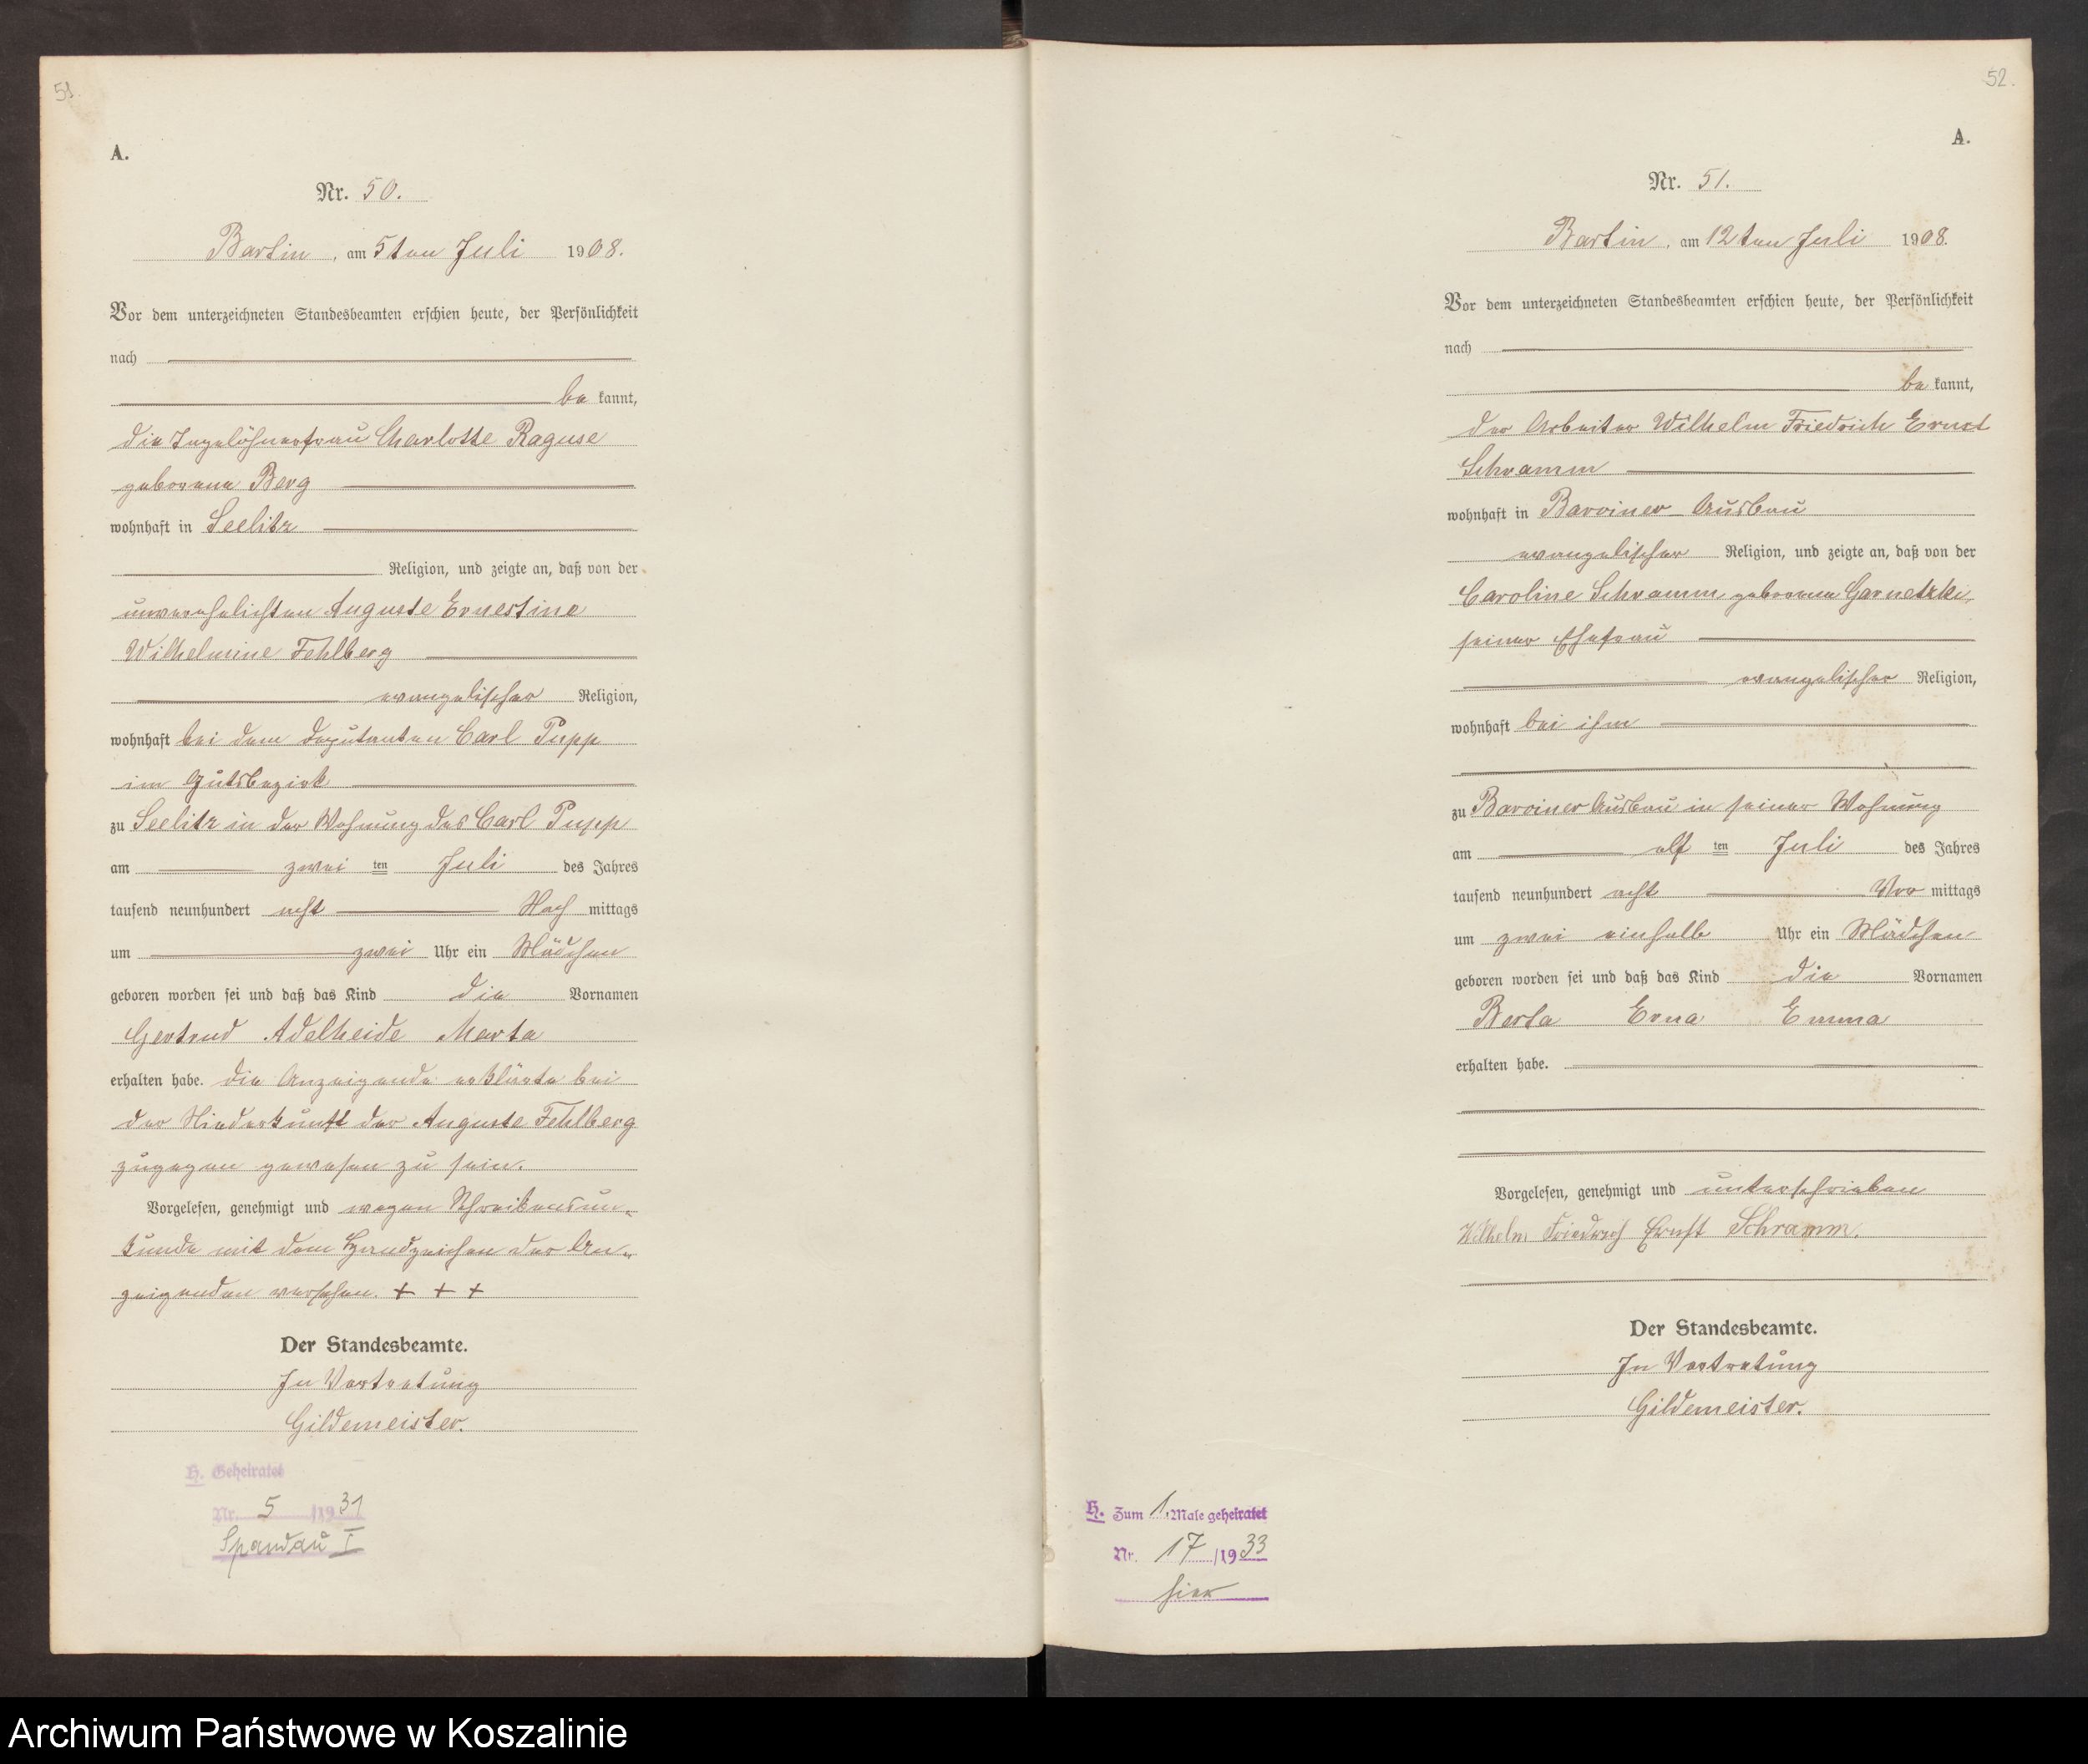 51.
A.
Nr. 50.
Bartin, am 5ten Juli 1908.
Vor dem unterzeichneten Standesbeamten erschien heute, der Persönlichkeit
nach
be kannt,
die Tagelöhnerfrau Charlotte Raguse
geborene Berg
wohnhaft in Seelitz
Religion, und zeigte an, daß von der
unverehelichten Auguste Ernestine
Wilhelmine Fehlberg
evangelischer Religion,
wohnhaft bei dem Deputanten Carl Pupp
im Gutsbezirk
zu Seelitz in der Wohnung des Carl Pupp
am zwei ten Juli des Jahres
tausend neunhundert acht Nach mittags
um zwei Uhr ein Mädchen
geboren worden sei und daß das Kind die Vornamen
Gertrud Adelheide Marta
erhalten habe. Die Anzeigende erklärte bei
der Niederkunft der Auguste Fehlberg
zugegen gewesen zu sein.
Vorgelesen, genehmigt und wegen Schreibensun-
kunde mit dem Handzeichen der An-
zeigenden versehen. + + +
Der Standesbeamte.
In Vertretung
Gildemeister.
H. Geheiratet
Nr. 5 /1931
Spandau I
52.
A.
Nr. 51.
Bartin, am 12ten Juli 1908.
Vor dem unterzeichneten Standesbeamten erschien heute, der Persönlichkeit
nach
be kannt,
der Arbeiter Wilhelm Friedrich Ernst
Schramm
wohnhaft in Barviner Ausbau
evangelischer Religion, und zeigte an, daß von der
Caroline Schramm geborene Garnetzki,
seiner Ehefrau
evangelischer Religion,
wohnhaft bei ihm
zu Barviner Ausbau in seiner Wohnung
am elf ten Juli des Jahres
tausend neunhundert acht Vor mittags
um zwei einhalb Uhr ein Mädchen
geboren worden sei und daß das Kind die Vornamen
Berta Erna Emma
erhalten habe.
Vorgelesen, genehmigt und unterschrieben
Wilhelm Friedrich Ernst Schramm.
Der Standesbeamte.
In Vertretung
Gildemeister.
H. Zum 1. Male geheiratet
Nr. 17 /1933
hier
Archiwum Państwowe w Koszalinie